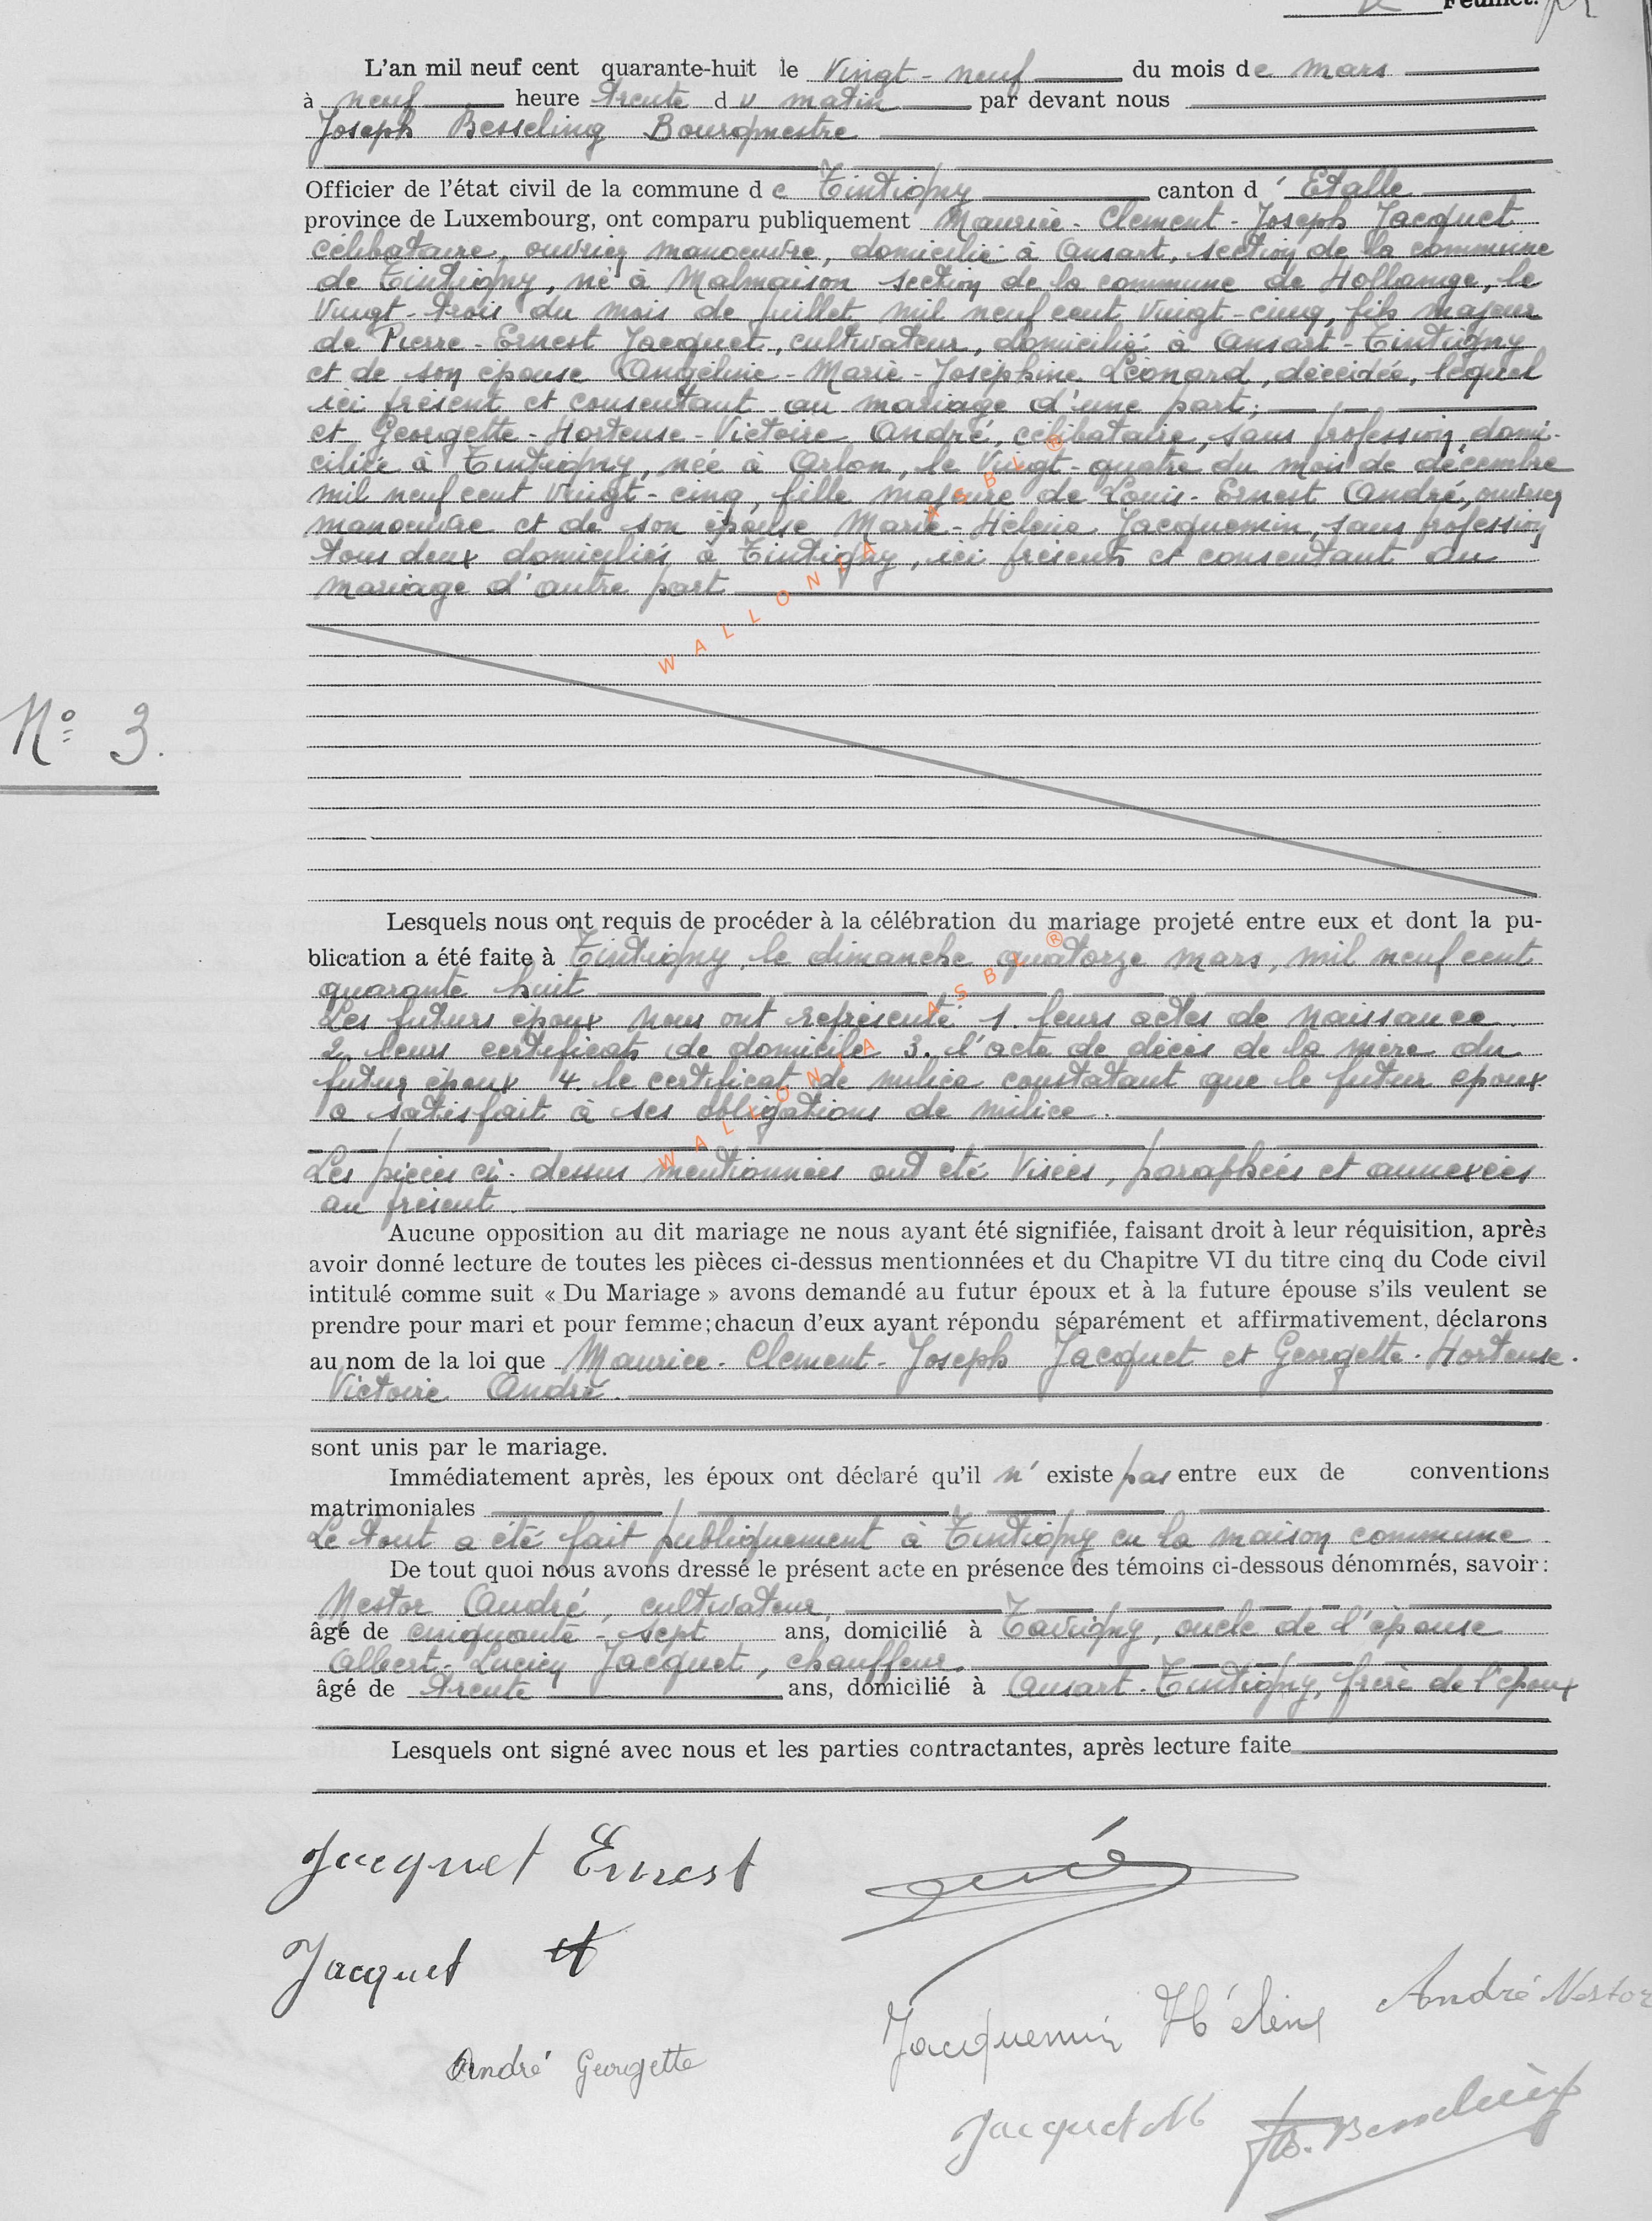 Feuillet.
L'an mil neuf cent quarante-huit le Vingt-neuf du mois de mars
à neuf heure trente du matin par devant nous
Joseph Besseling Bourgmestre
Officier de l'état civil de la commune de Tintigny canton d'Etalle
province de Luxembourg, ont comparu publiquement Maurice-Clement-Joseph Jacquet
célibataire, ouvrier manoeuvre, domicilié à Ansart, section de la commune
de Tintigny, né à Malmaison section de la commune de Hollange, le
Vingt-trois du mois de juillet mil neuf cent Vingt-cinq, fils majeur
de Pierre-Ernest Jacquet, cultivateur, domicilié à Ansart-Tintigny
et de son épouse Angéline-Marie-Joséphine Léonard, décédée, lequel
ici présent et consentant au mariage d'une part;
et Georgette-Hortense-Victoire André, célibataire, sans profession, domi-
ciliée à Tintigny, née à Arlon, le Vingt-quatre du mois de décembre
mil neuf cent Vingt-cinq, fille majeure de Louis-Ernest André, ouvrier
manoeuvre et de son épouse Marie-Hélène Jacquemin, sans profession
tous deux domiciliés à Tintigny, ici présents et consentant au
mariage d'autre part
WALLONIA ASBL ®
N° 3.
Lesquels nous ont requis de procéder à la célébration du mariage projeté entre eux et dont la pu-
blication a été faite à Tintigny, le dimanche quatorze mars, mil neuf cent
quarante huit
Les futurs époux nous ont représenté 1. leurs actes de naissance
2. leurs certificats de domicile 3. l'acte de décès de la mère du
futur époux 4 le certificat de milice constatant que le futur époux
a satisfait à ses obligations de milice.
WALLONIA ASBL ®
Les pièces ci-dessus mentionnées ont été Visées, paraphées et annexées
au présent.
Aucune opposition au dit mariage ne nous ayant été signifiée, faisant droit à leur réquisition, après
avoir donné lecture de toutes les pièces ci-dessus mentionnées et du Chapitre VI du titre cinq du Code civil
intitulé comme suit « Du Mariage » avons demandé au futur époux et à la future épouse s'ils veulent se
prendre pour mari et pour femme; chacun d'eux ayant répondu séparément et affirmativement, déclarons
au nom de la loi que Maurice-Clement-Joseph Jacquet et Georgette-Hortense-
Victoire André.
sont unis par le mariage.
Immédiatement après, les époux ont déclaré qu'il n'existe pas entre eux de conventions
matrimoniales
Le tout a été fait publiquement à Tintigny en la maison commune.
De tout quoi nous avons dressé le présent acte en présence des témoins ci-dessous dénommés, savoir:
Nestor André, cultivateur,
âgé de cinquante-sept ans, domicilié à Tavigny, oncle de l'épouse
Albert-Lucien Jacquet, chauffeur,
âgé de trente ans, domicilié à Ansart-Tintigny, frère de l'époux
Lesquels ont signé avec nous et les parties contractantes, après lecture faite
Jacquet Ernest
Jacquet
André Nestor
Jacquemin Hélène
André Georgette
Jacquet M
Jos. Besseling